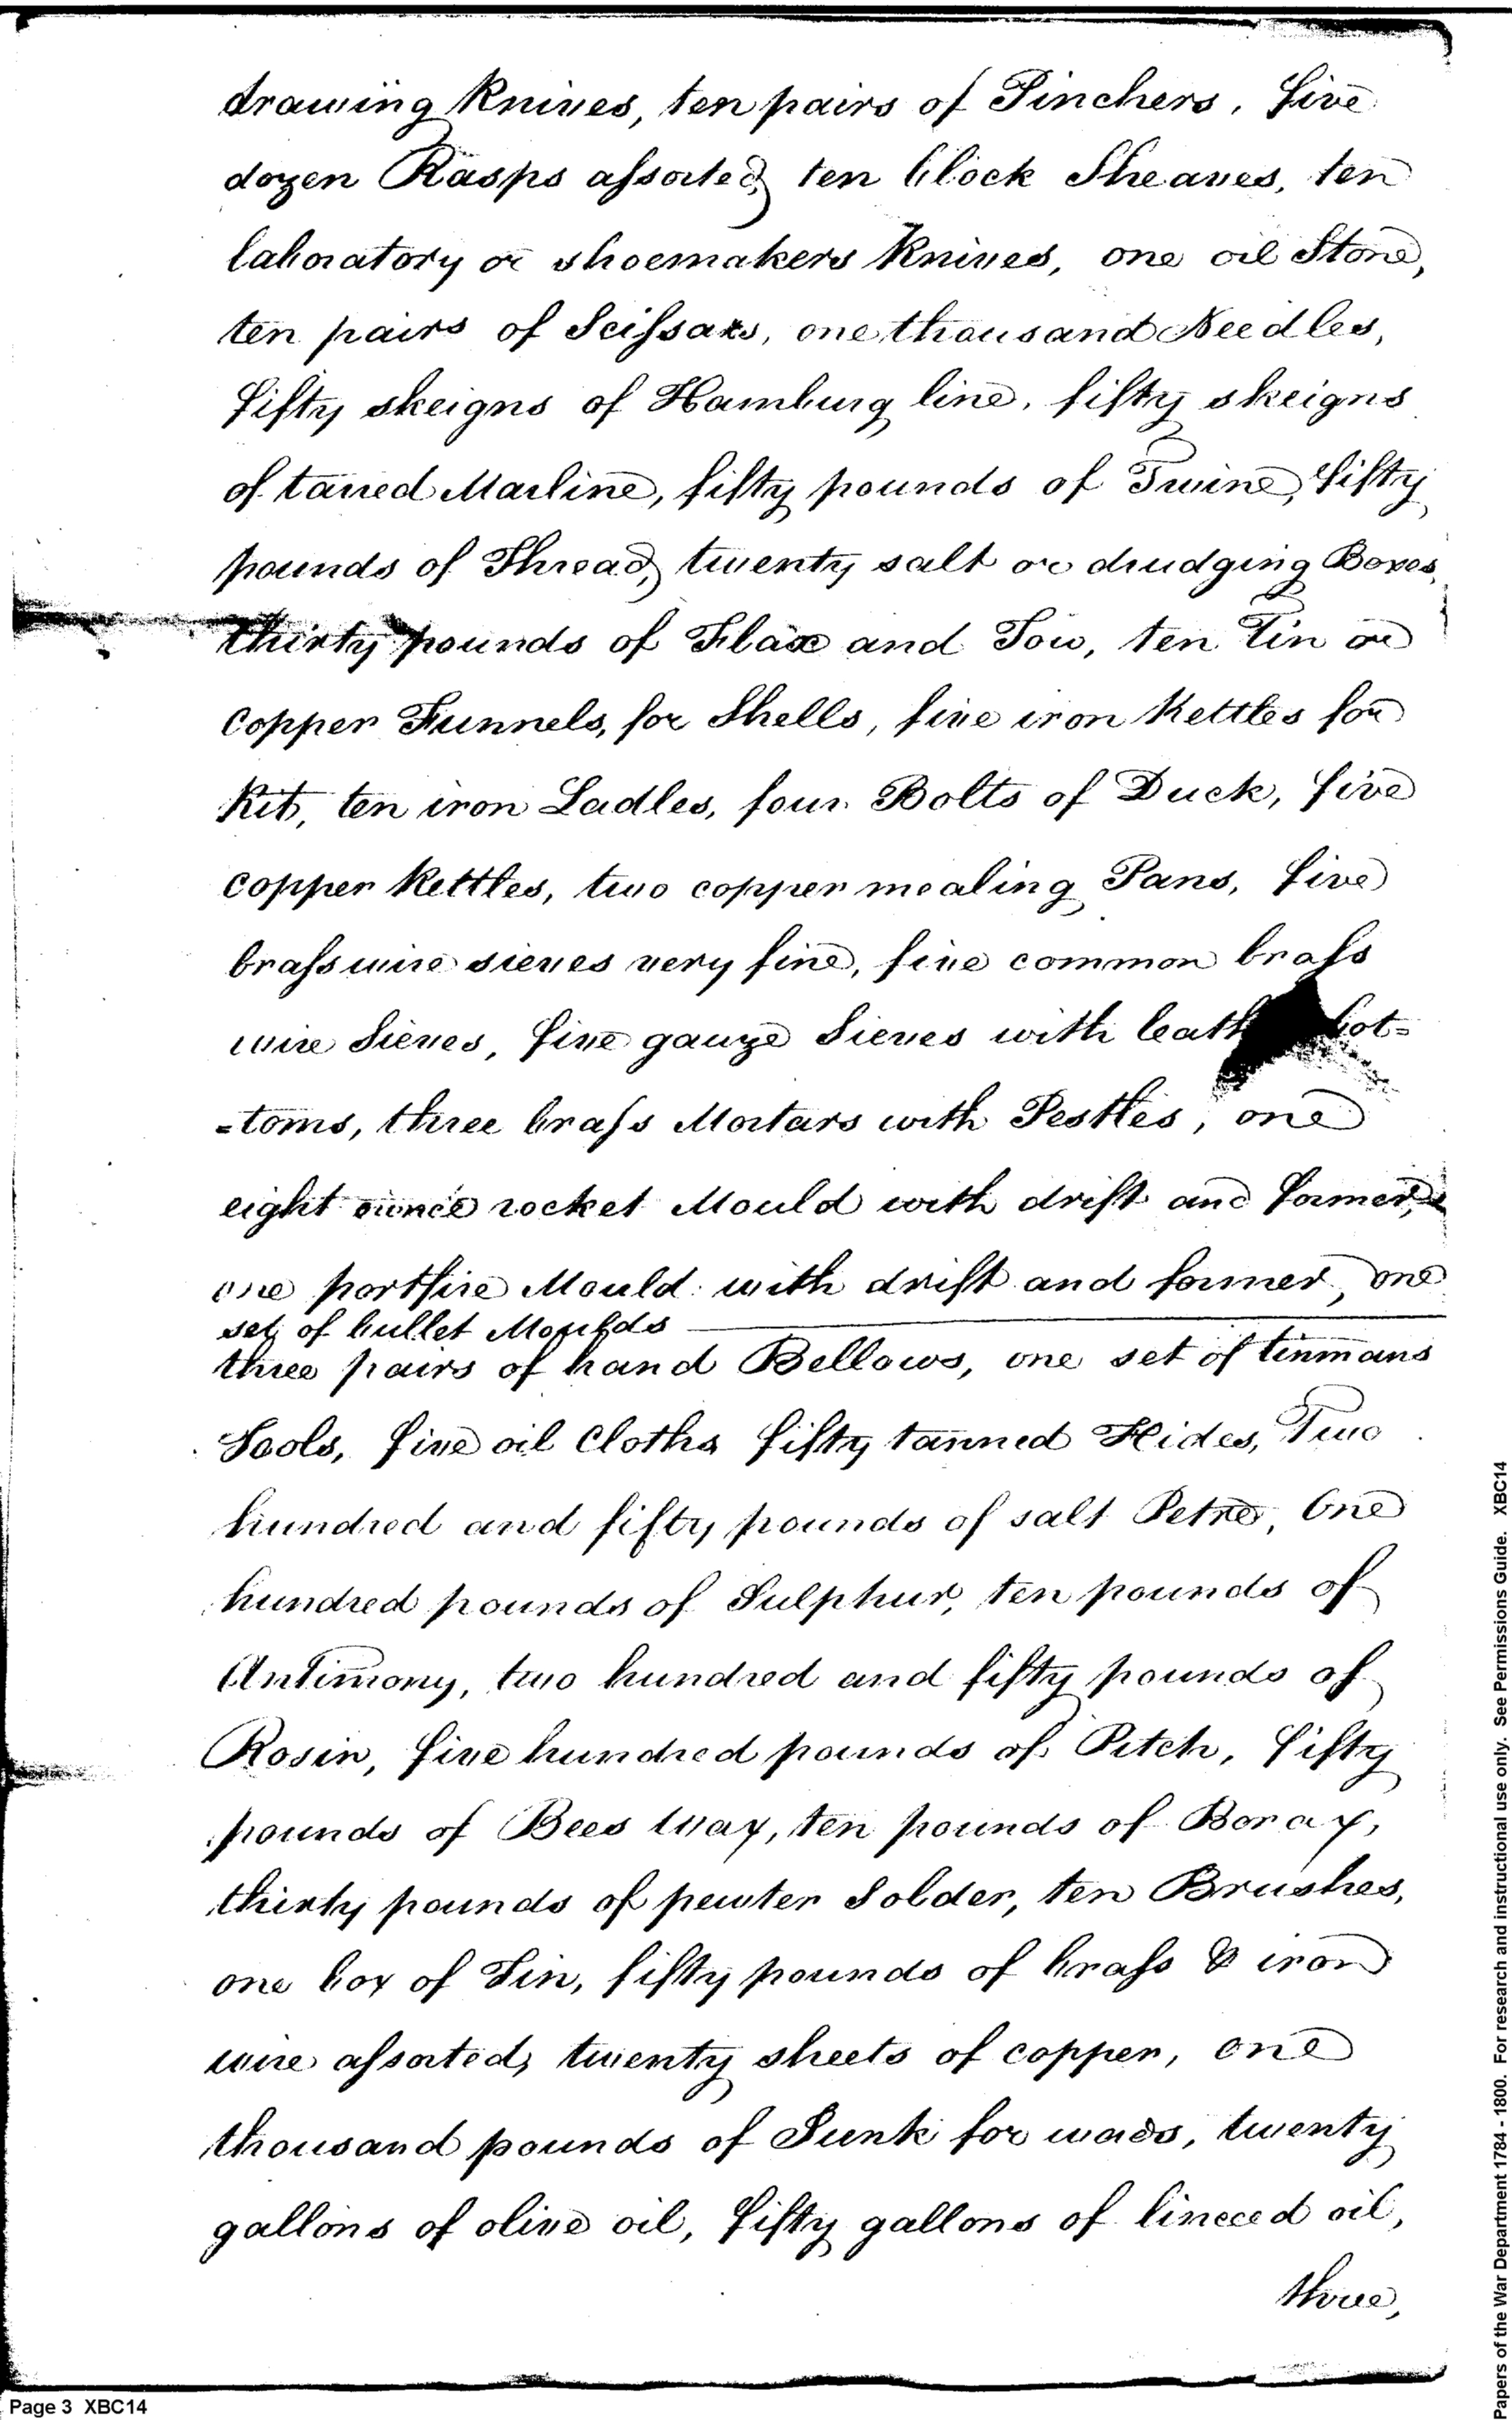 drawing Knives, ten pairs of Pinchers, five
dozen Rasps assorted, ten block Sheaves, ten
laboratory or shoemakers Knives, one oil Stone,
ten pairs of Scissars, one thousand Needles,
fifty skeigns of Hamburg line, fifty skeigns
of tarred Marline, fifty pounds of Twine, fifty
pounds of Thread, twenty salt or drudging Boxes,
thirty pounds of Flax and Tow, ten Tin or
Copper Funnels, for Shells, five iron Kettles for
Kit, ten iron Ladles, four Bolts of Duck, five
copper Kettles, two copper mealing Pans, five
brass wire sieves very fine, five common brass
wire Sieves, five gauze Sieves with leath bot=
=toms, three brass Mortars with Pestles, one
eight ounce rocket Mould with drift and former,
one portfire Mould with drift and former, one
set of bullet Moulds
three pairs of hand Bellows, one set of tinmans
Tools, five oil Cloths fifty tanned Hides, Two
hundred and fifty pounds of salt Petre, One
hundred pounds of Sulphur, ten pounds of
Antimony, two hundred and fifty pounds of
Rosin, five hundred pounds of Pitch, fifty
pounds of Bees Wax, ten pounds of Borax,
thirty pounds of pewter Solder, ten Brushes,
one box of Tin, fifty pounds of brass & iron
wire assorted, twenty sheets of copper, one
thousand pounds of Junk for wads, twenty
gallons of olive oil, fifty gallons of linceed oil,
three,
Page 3 XBC14
Papers of the War Department 1784 - 1800. For research and instructional use only. See Permissions Guide. XBC14